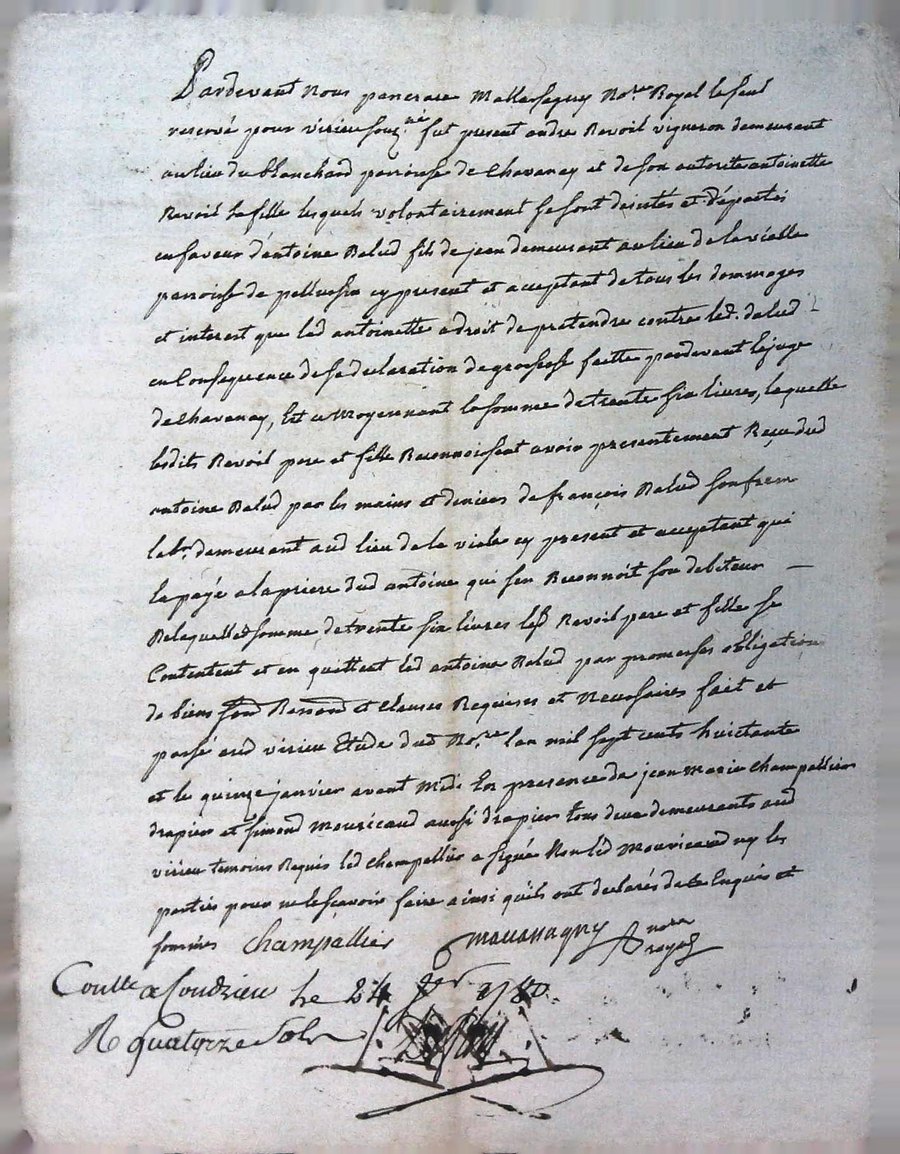 Pardevant Nous pancrace Mallassagny No.re Royal le seul
reservé pour virieu souz.né fut present andre Revoil vigneron demeurant
au lieu du blanchard parroisse de Chavanay et de son autorité antoinette
Revoil sa fille lesquels volontairement se sont desistés et départis
en faveur d'antoine Balud fils de jean demeurant au lieu de la vialle
parroisse de pellussin cy present et acceptant de tous les dommages
et interest que lad antoinette a droit de pretendre contre led. Balud
en Consequence de sa declaration de grossesse faitte pardevant le juge
de Chavanay, Et ce moyennant la somme de trente six livres, laquelle
lesdits Revoil pere et fille Reconnoissent avoir presentement Reçu dud
antoine Balud par les mains et deniers de françois Balud son frere
lab.r demeurant aud lieu de la viale cy present et acceptant qui
la payé a la priere dud antoine qui s'en Reconnoit son debiteur
De laquelle somme de trente six livres lesd Revoil pere et fille se
Contentent et en quittent led antoine Balud par promesses obligation
de biens et Clauses Requises et Necessaires fait et
passé aud virieu Etude dud No.re l'an mil sept cents huictante
et le quinze janvier avant midi En presence de jean Marie Champallier
drapier et simond Mouricaud aussi drapier tous deux demeurants aud
virieu temoins Requis led Champallier a signé Non led Mouricaud ny les
parties pour ne le scavoir faire ainsi qu'ils ont declarés de ce Enquis et
sommés Champallier Mallassagny no.re royal
Con.lle a Condrieu le 24 j.er 1780.
R quatorze sols